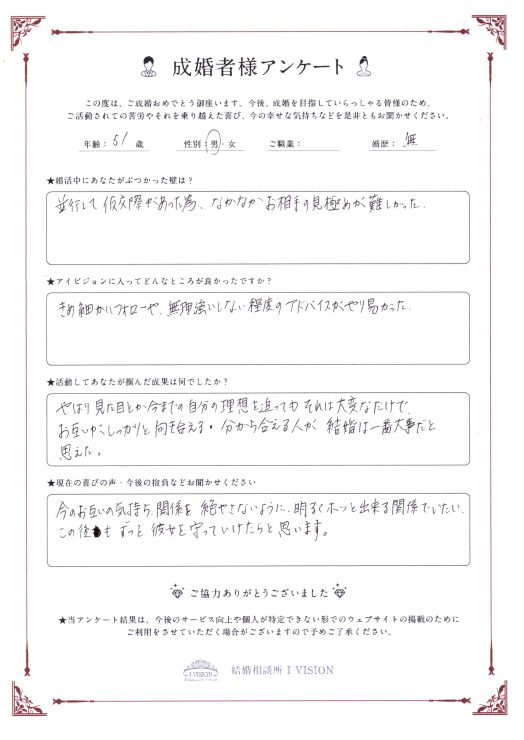 成婚者様アンケート
この度は、ご成婚おめでとう御座います。今後、成婚を目指していらっしゃる皆様のため、
ご活動されての苦労やそれを乗り越えた喜び、今の幸せな気持ちなどを是非ともお聞かせください。
年齢： 51 歳 性別：男・女 ご職業： 婚歴： 無
★婚活中にあなたがぶつかった壁は？
並行して仮交際があった為、なかなかお相手の見極めが難しかった。
★アイビジョンに入ってどんなところが良かったですか？
きめ細かいフォローや、無理強いしない程度のアドバイスがやり易かった。
★活動してあなたが掴んだ成果は何でしたか？
やはり見た目とか今までの自分の理想を追っても それは大変なだけで、
お互いがしっかりと向き合える・分かち合える人が 結婚は一番大事だと
思えた。
★現在の喜びの声・今後の抱負などお聞かせください
今のお互いの気持ち、関係を絶やさないように、明るくホッと出来る関係でいたい。
この後も ずっと 彼女を守っていけたらと思います。
ご協力ありがとうございました
★当アンケート結果は、今後のサービス向上や個人が特定できない形でのウェブサイトの掲載のために
ご利用をさせていただく場合がございますので予めご了承ください。
I VISION
結婚相談所 I VISION